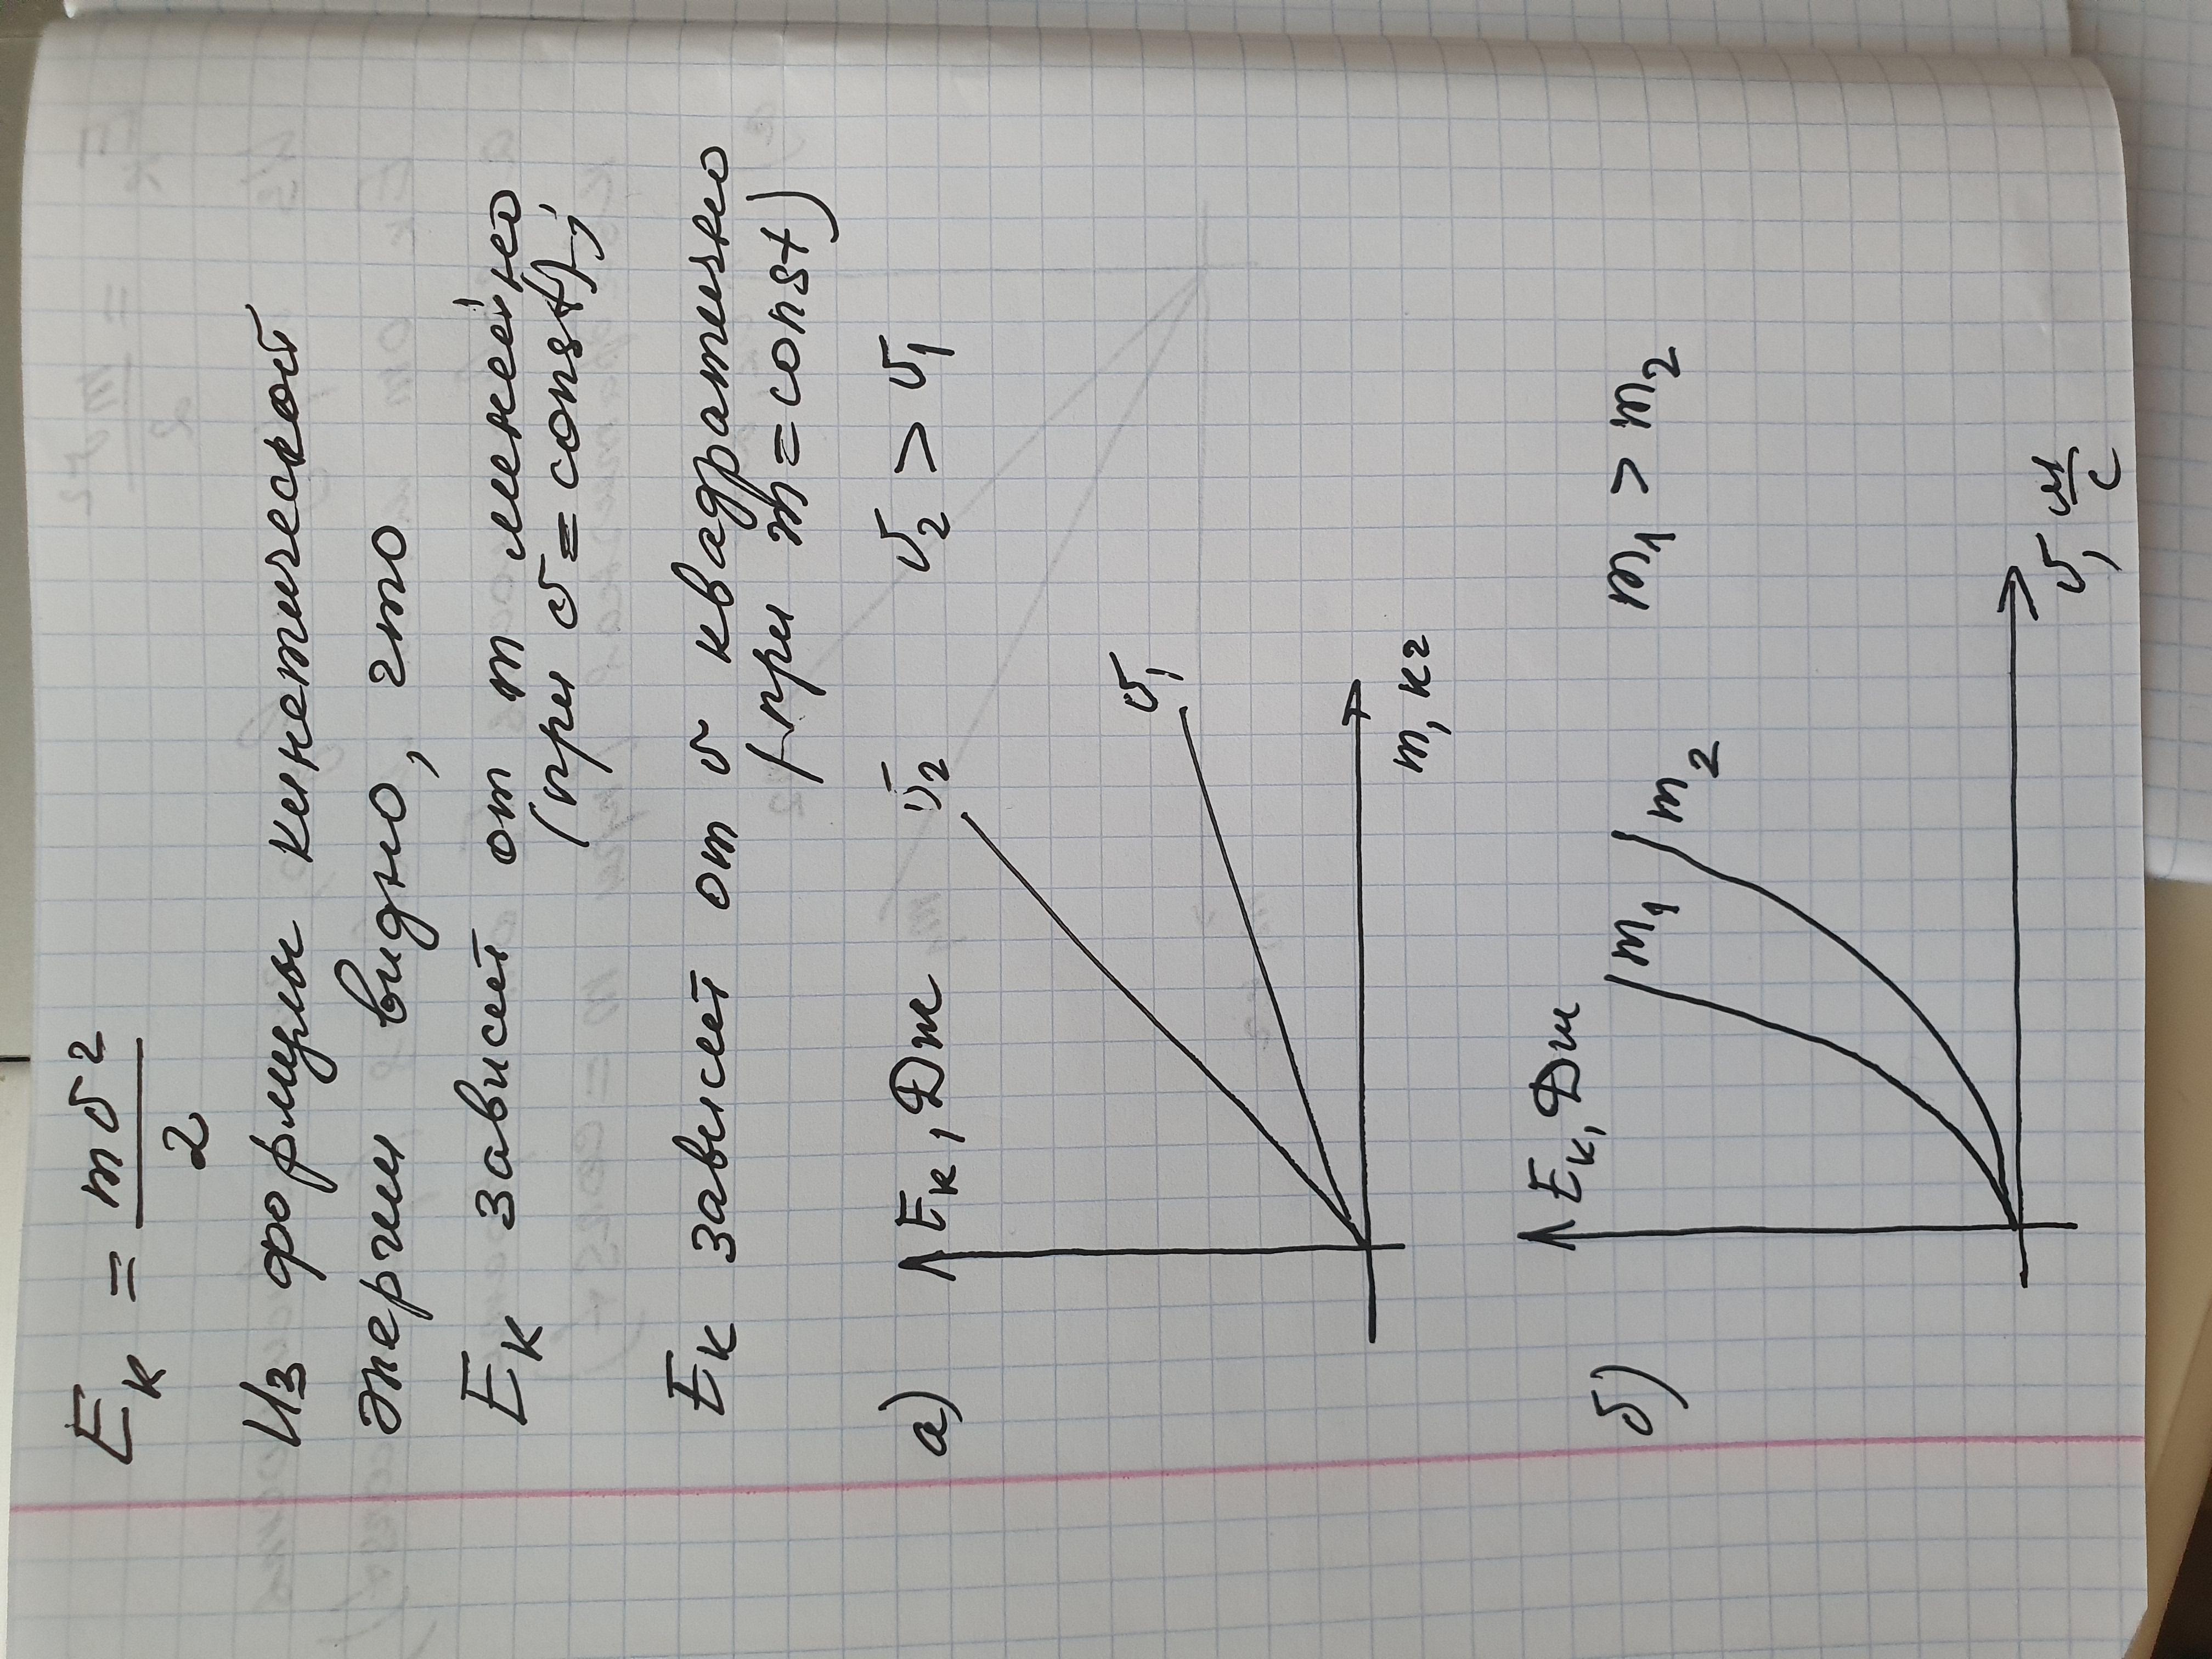 Eк = mυ²/2
Из формулы кинетической
энергии видно, что
Eк зависет от m линейно
(при υ = const);
Eк зависет от υ квадратично
(при m = const)
а) Eк, Дж υ₂ > υ₁
υ₂
υ₁
m, кг
б) Eк, Дж m₁ > m₂
m₁ m₂
υ, м/с